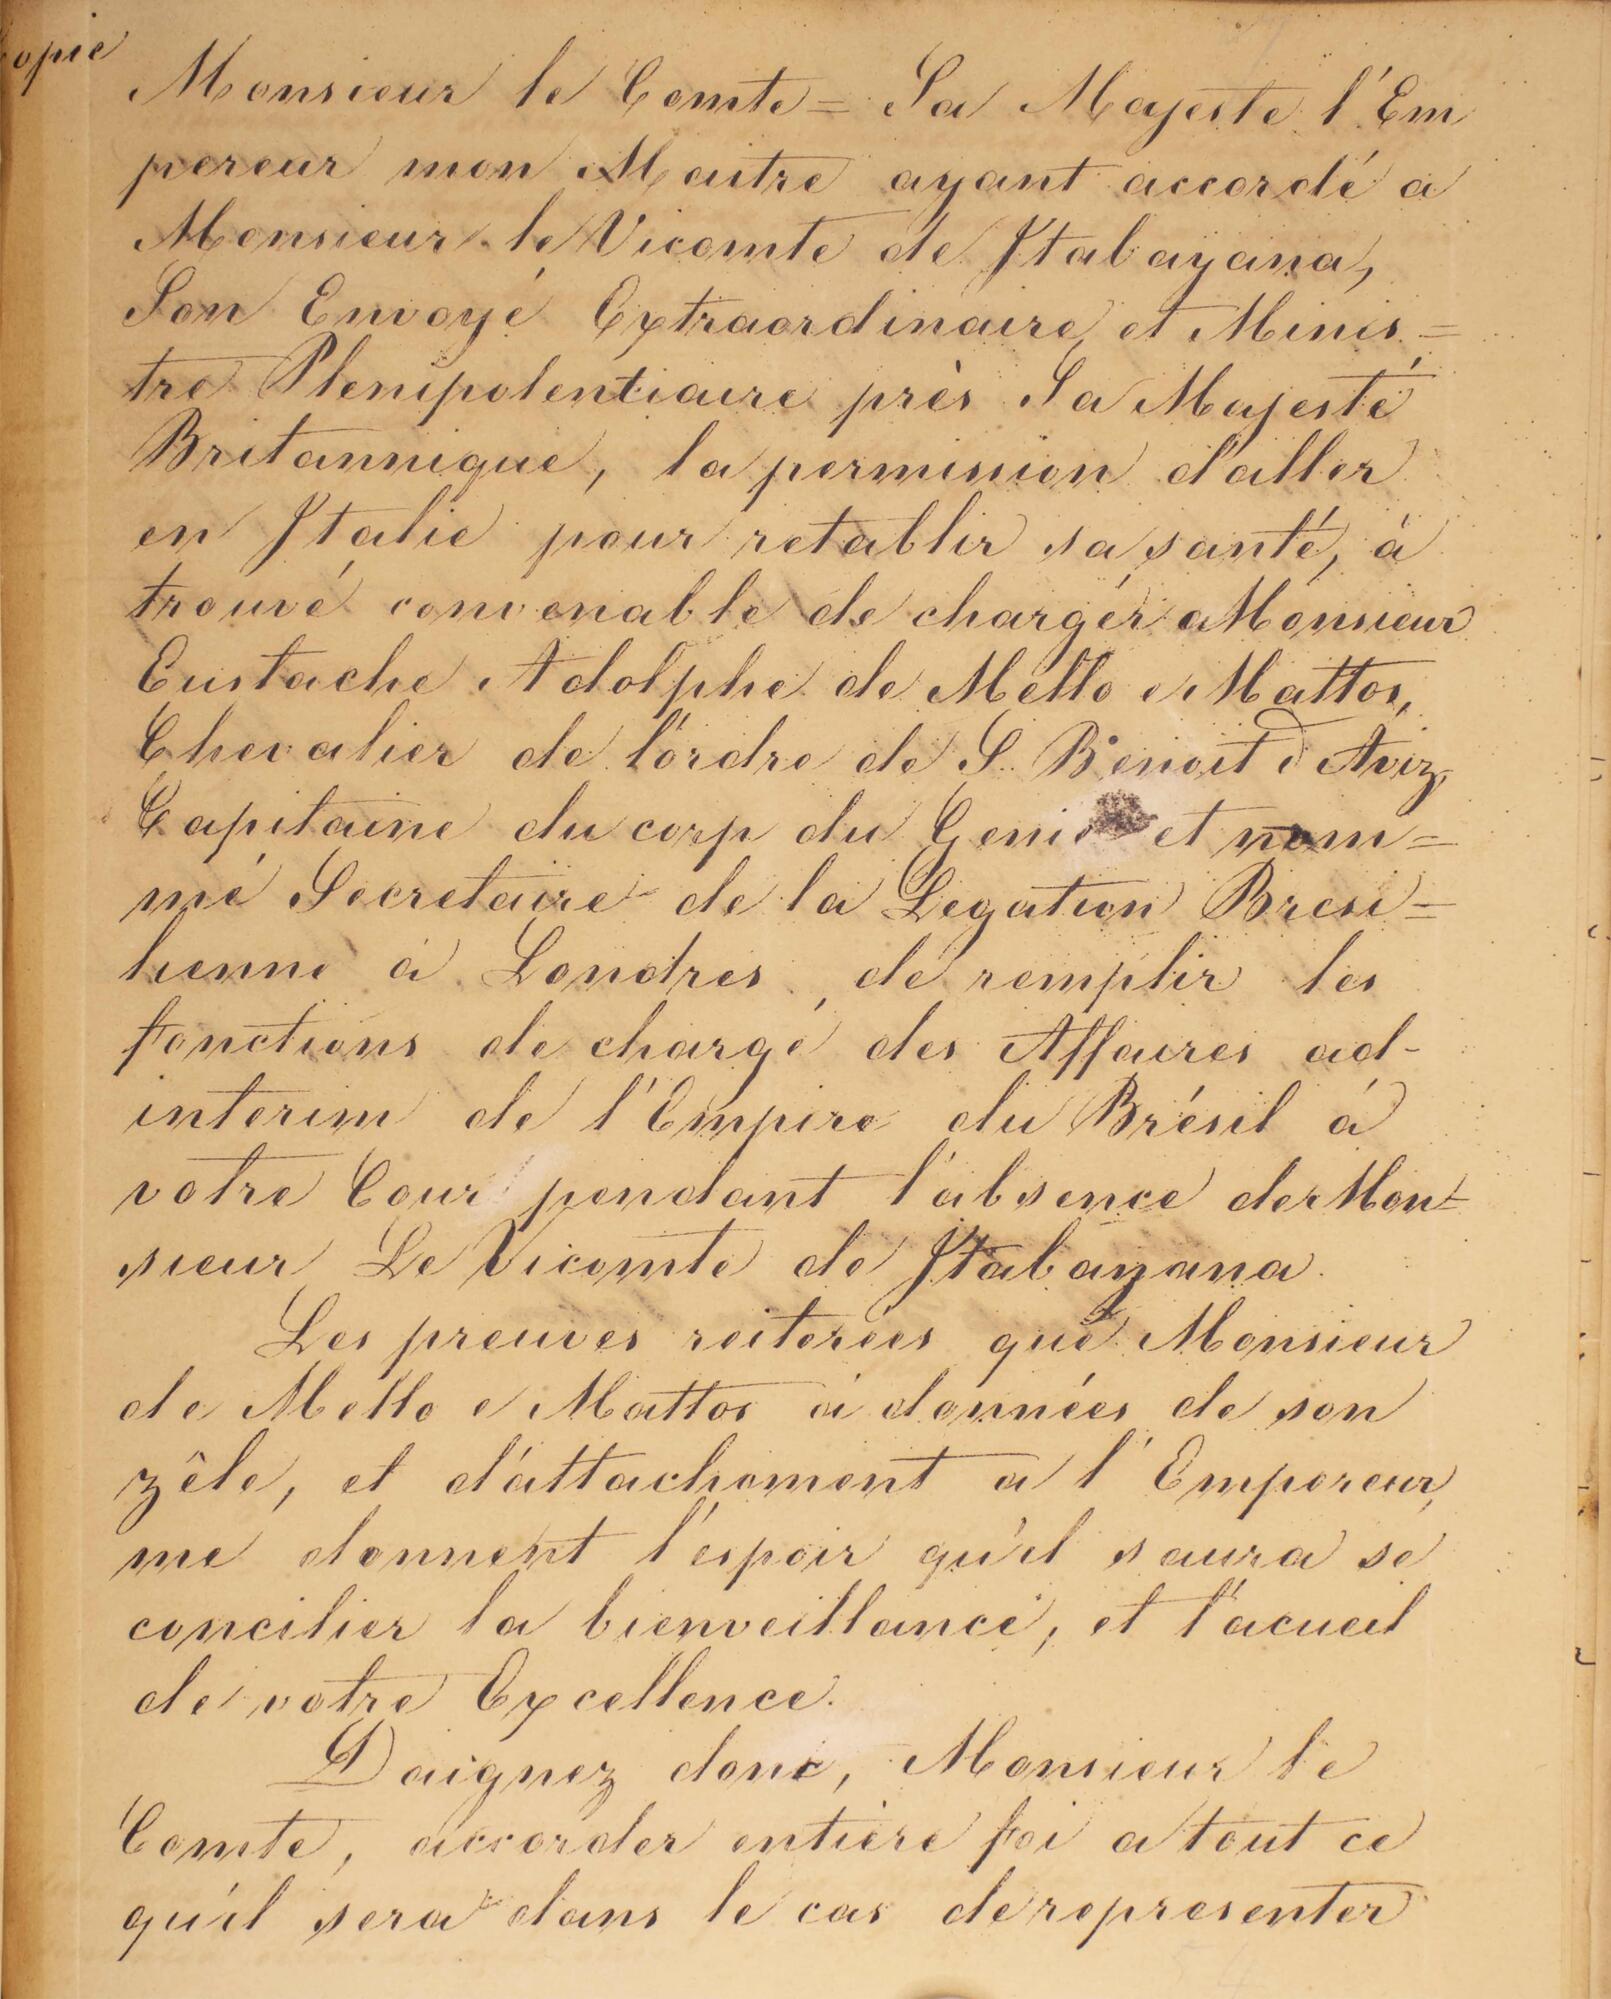 Copie
Monsieur le Comte = Sa Majeste l'Em
pereur mon Maitre ayant accordé a
Monsieur le Vicomte de Itabayana,
Son Envoyé Extraordinaire et Minis =
tre Plenipotentiaire près Sa Majesté
Britannique, la permission d'aller
en Italie pour retablir sa santé, à
trouvé convenable de chargér a Monsieur
Eustache Adolphe de Mello e Mattos,
Chevalier de l'ordre de S. Benoit d'Aviz,
Capitaine du corp du Genie et nom =
mé Secretaire de la Legation Bresi =
lienne à Londres, de remplir les
fonctions de chargé des Affaires ad-
interim de l'Empire du Brésil á
votre Cour pendant l'absence de Mon =
sieur Le Vicomte de Itabayana.
Les preuves reiterées que Monsieur
de Mello e Mattos à données de son
zêle, et d'attachement a l'Empereur,
me donnent l'espoir qu'il saura se
concilier la bienveillance, et l'acueil
de votre Excellence.
Daignez donc, Monsieur le
Comte, accorder entière foi a tout ce
qu'il sera dans le cas de representer